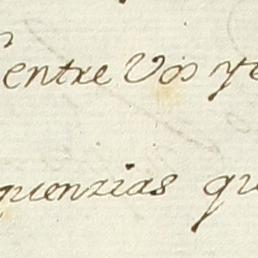 entre Vos y
quenzias qu